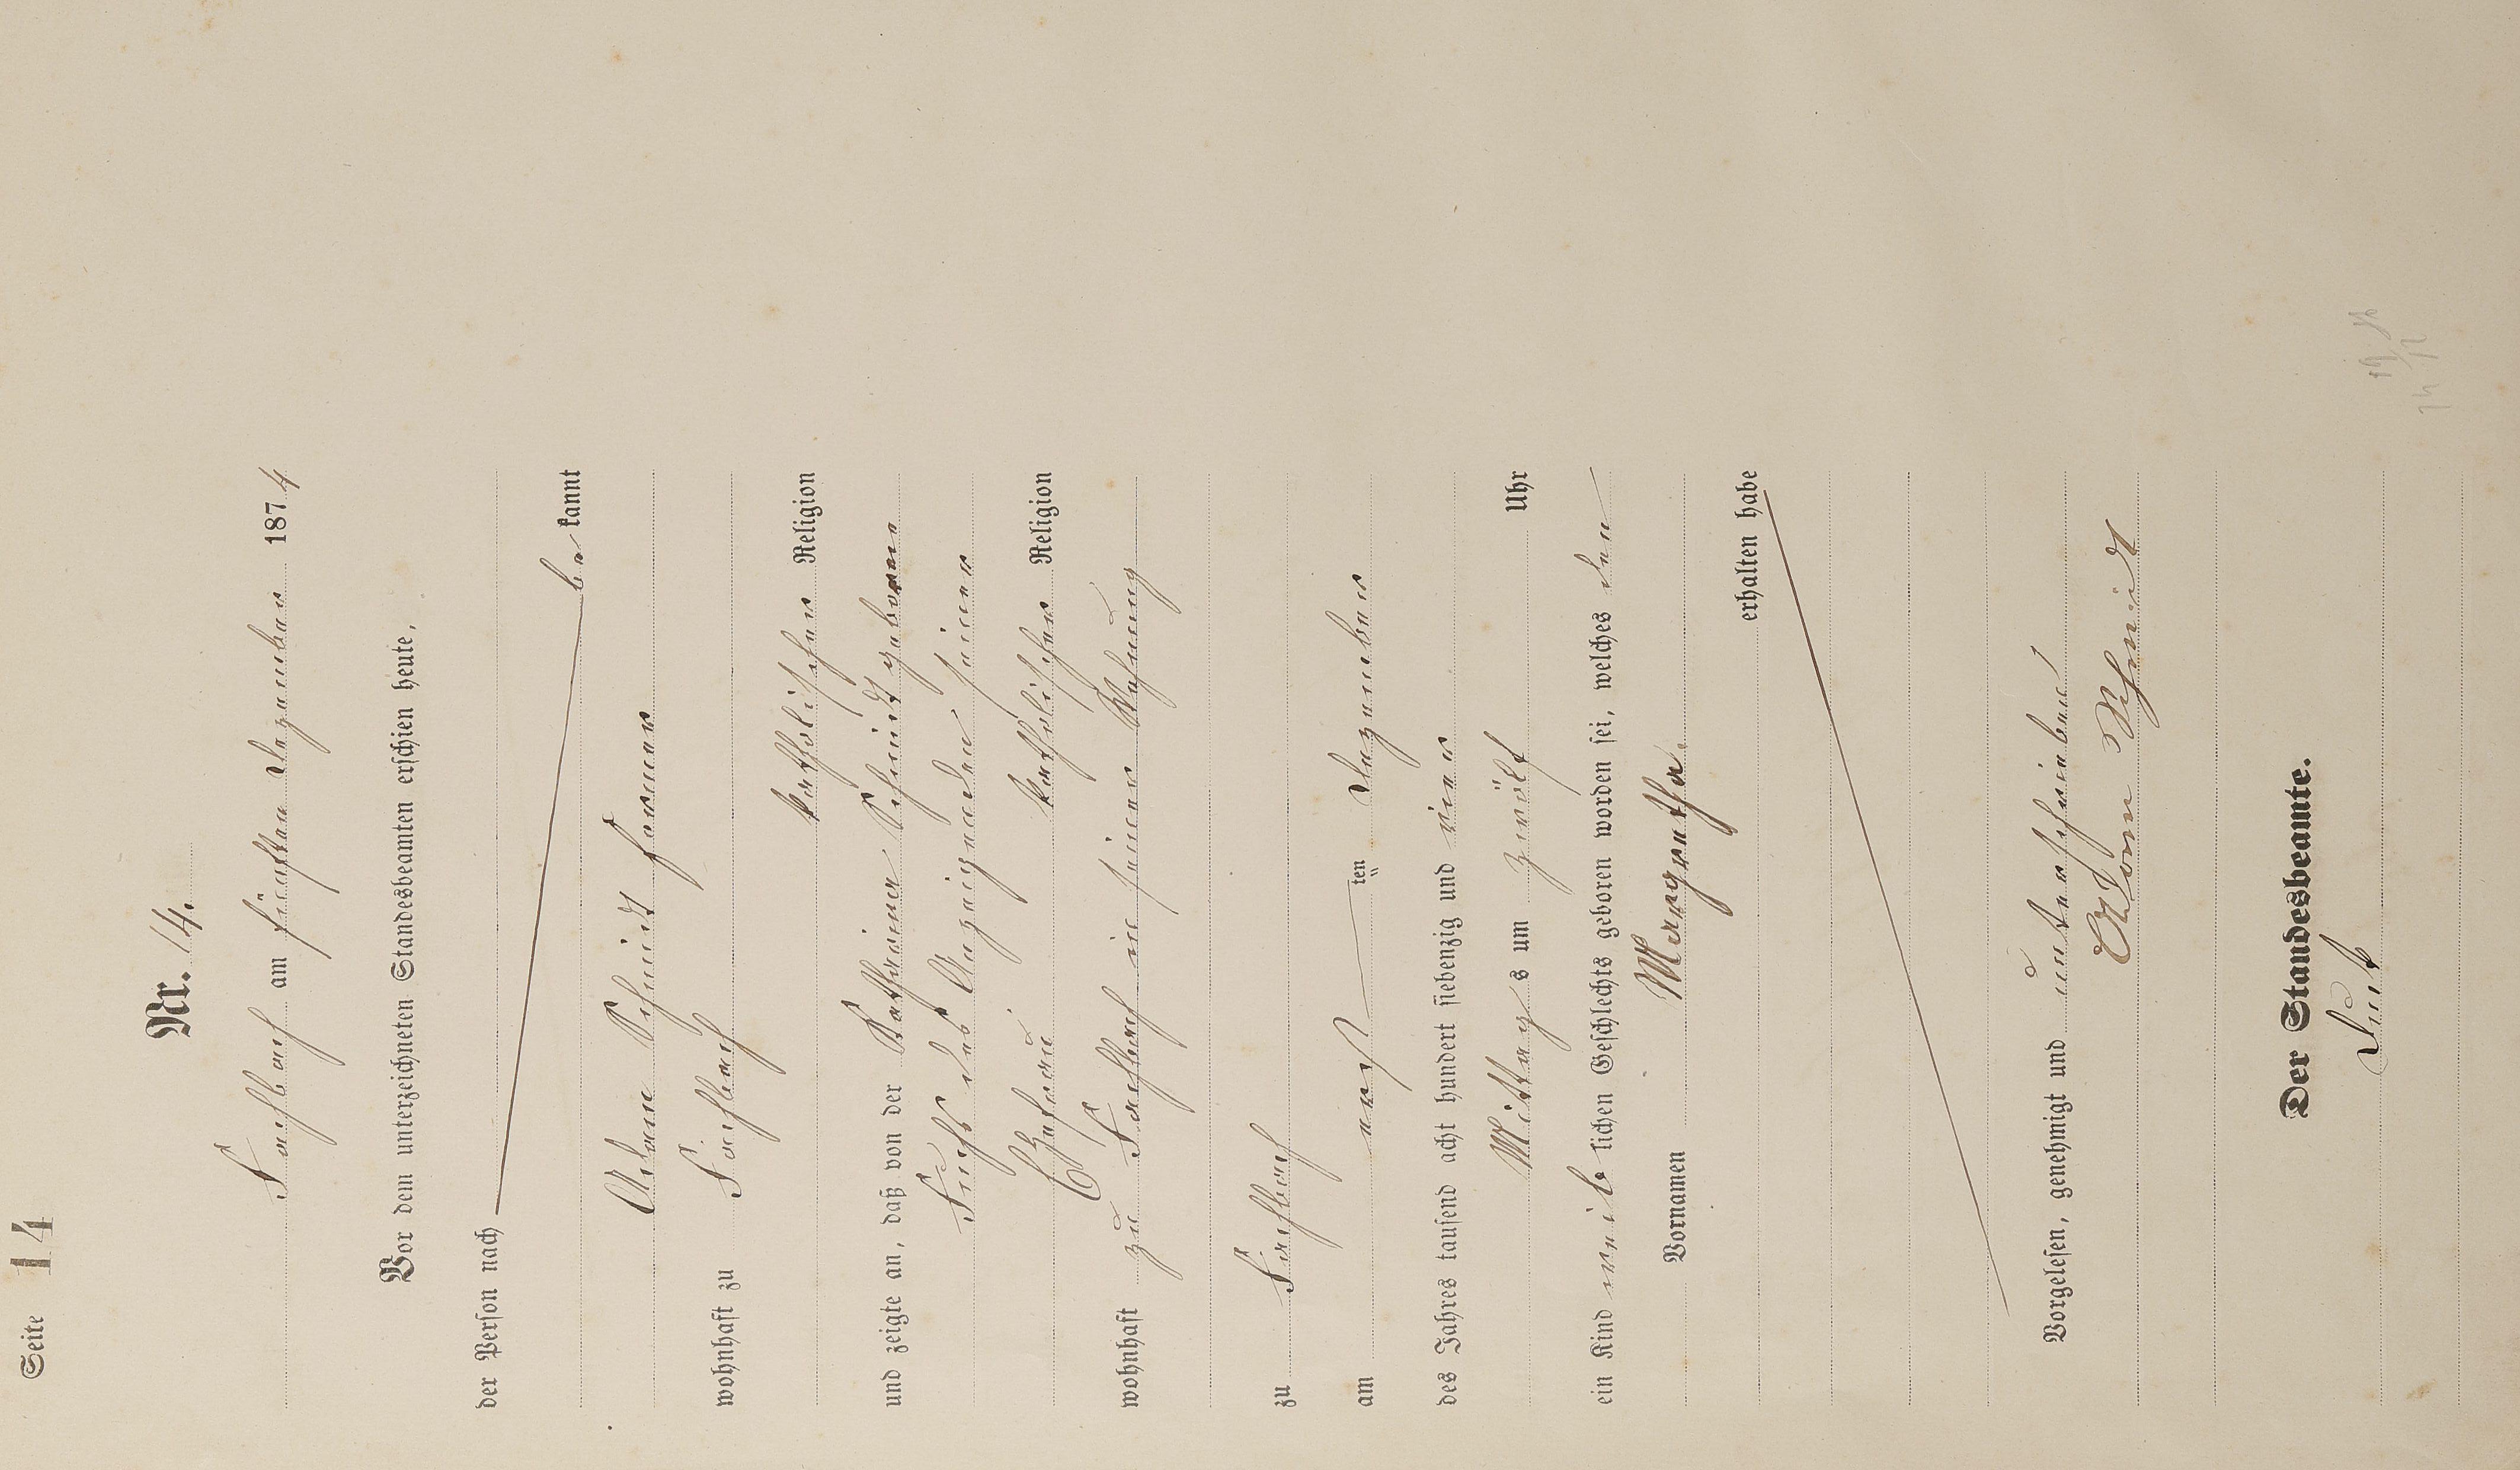 Seite 14
Nr. 14.
Fachbach am fünften Dezember 1874
Vor dem unterzeichneten Standesbeamten erschien heute,
der Person nach
be kannt
Adam Schmidt Former
wohnhaft zu Fachbach
katholischer Religion
und zeigte an, daß von der Katharina Schmidt geborene
Fuchs des Anzeigenden seiner
Ehefrau katholischer Religion
wohnhaft zu Fachbach in seiner Wohnung
zu Fachbach
am erst ten Dezember
des Jahres tausend acht hundert siebenzig und vier
Mittag s um zwölf Uhr
ein Kind weib lichen Geschlechts geboren worden sei, welches den
Vornamen Margretha.
erhalten habe
Vorgelesen, genehmigt und unterschrieben
Adam Schmidt
Der Standesbeamte.